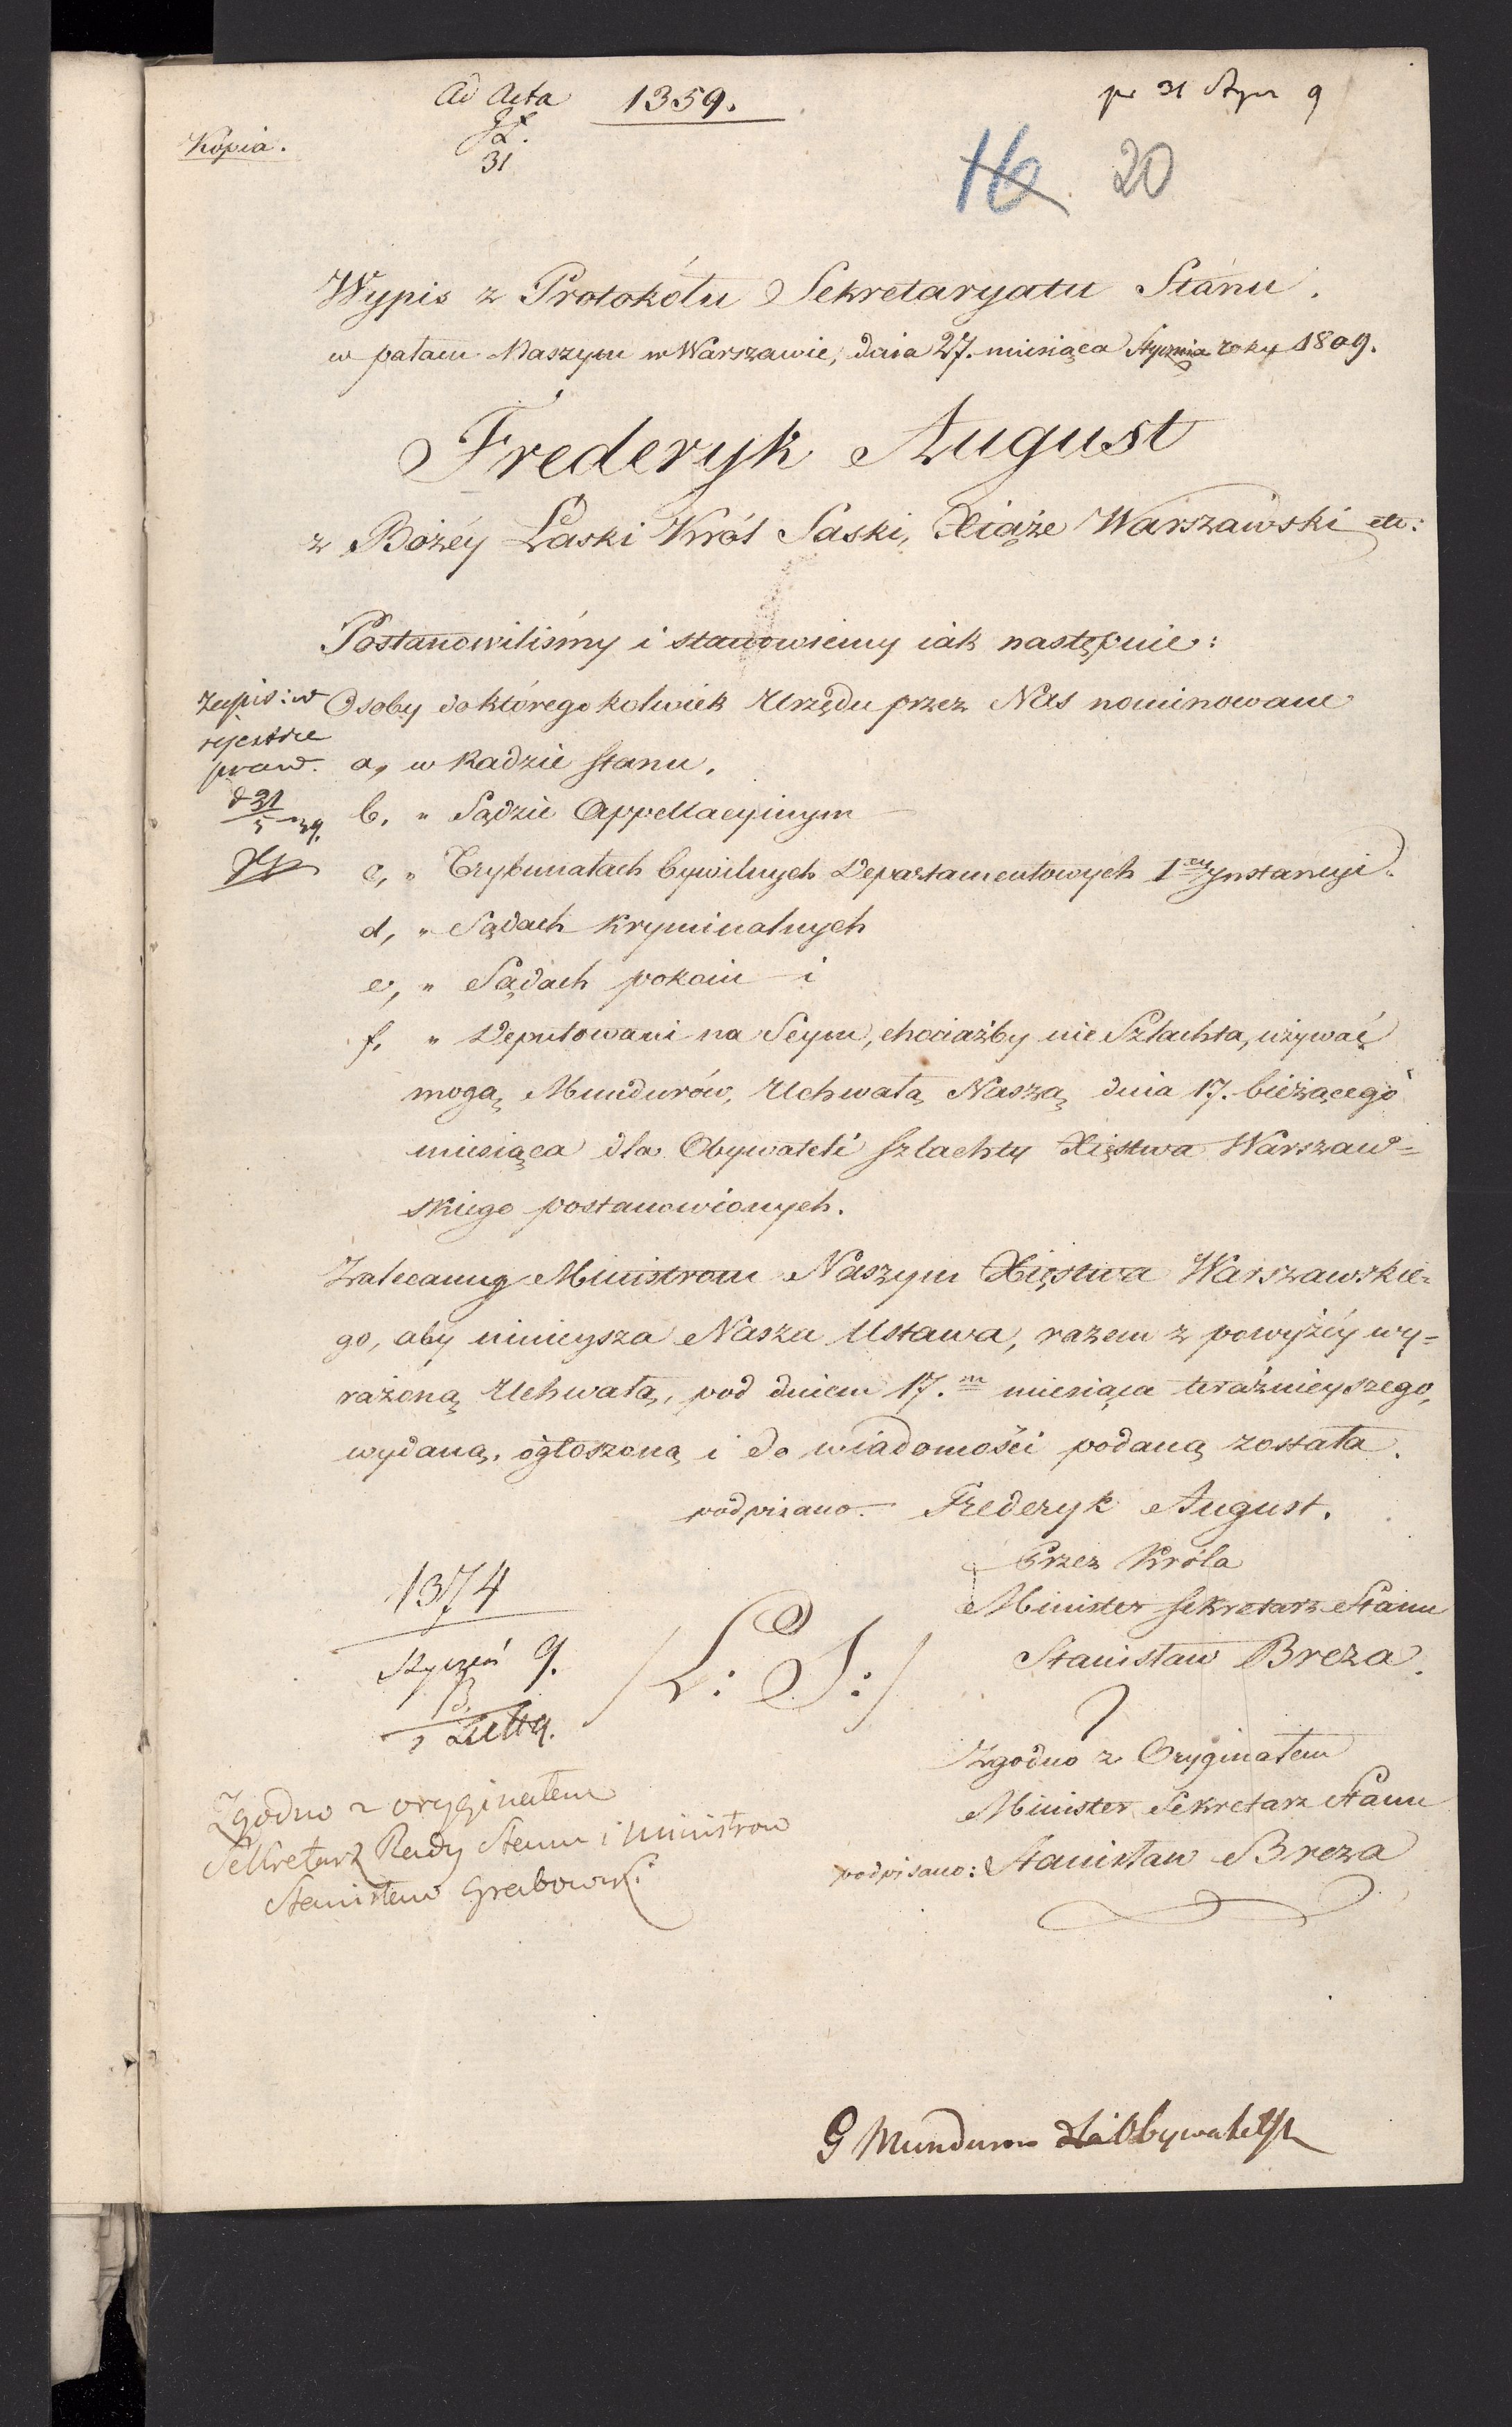 Ad Acta 1359. pr 31 Stycz 9
31
Kopia.
16. 20
Wypis z Protokółu Sekretaryatu Stanu.
w pałacu Naszym w Warszawie, dnia 27. miesiąca Stycznia roku 1809.
Frederyk August
z Bożéy Łaski Król Saski, Xiąże Warszawski etc:
Postanowiliśmy i stanowiemy iak następuie:
Zapis: w
rejestrze
praw.
Osoby do któregokolwiek Urzędu przez Nas nominowane
a, w Radzie Stanu,
b, " Sądzie Appellacyinym
c, " Trybunałach Cywilnych Departamentowych 1éy Instancyi.
d, " Sądach Kryminalnych
e, " Sądach pokoiu i
f, " Deputowani na Seym, chociażby nie Szlachta, używać
mogą Mundurów, Uchwałą Naszą dnia 17. bieżącego
miesiąca dla Obywateli szlachty Xięstwa Warszaw=
skiego postanowionych.
Zalecamy Ministrom Naszym Xięstwa Warszawskie=
go, aby ninieysza Nasza Ustawa, razem z powyżéy wy=
rażoną Uchwałą, pod dniem 17.m miesiąca teraźnieyszego,
wydaną, ogłoszoną i do wiadomości podaną została.
podpisano – Frederyk August.
Przez Króla
Minister Sekretarz Stanu
Stanisław Breza.
1374
Styczeń 9.
/L: S:/
Zgodno z Oryginałem
Minister Sekretarz Stanu
podpisano: Stanisław Breza
Zgodno z oryginałem
Sekretarz Rady Stanu i Ministrow
Stanisław Grabowski
G Mundurow dla Obywateli